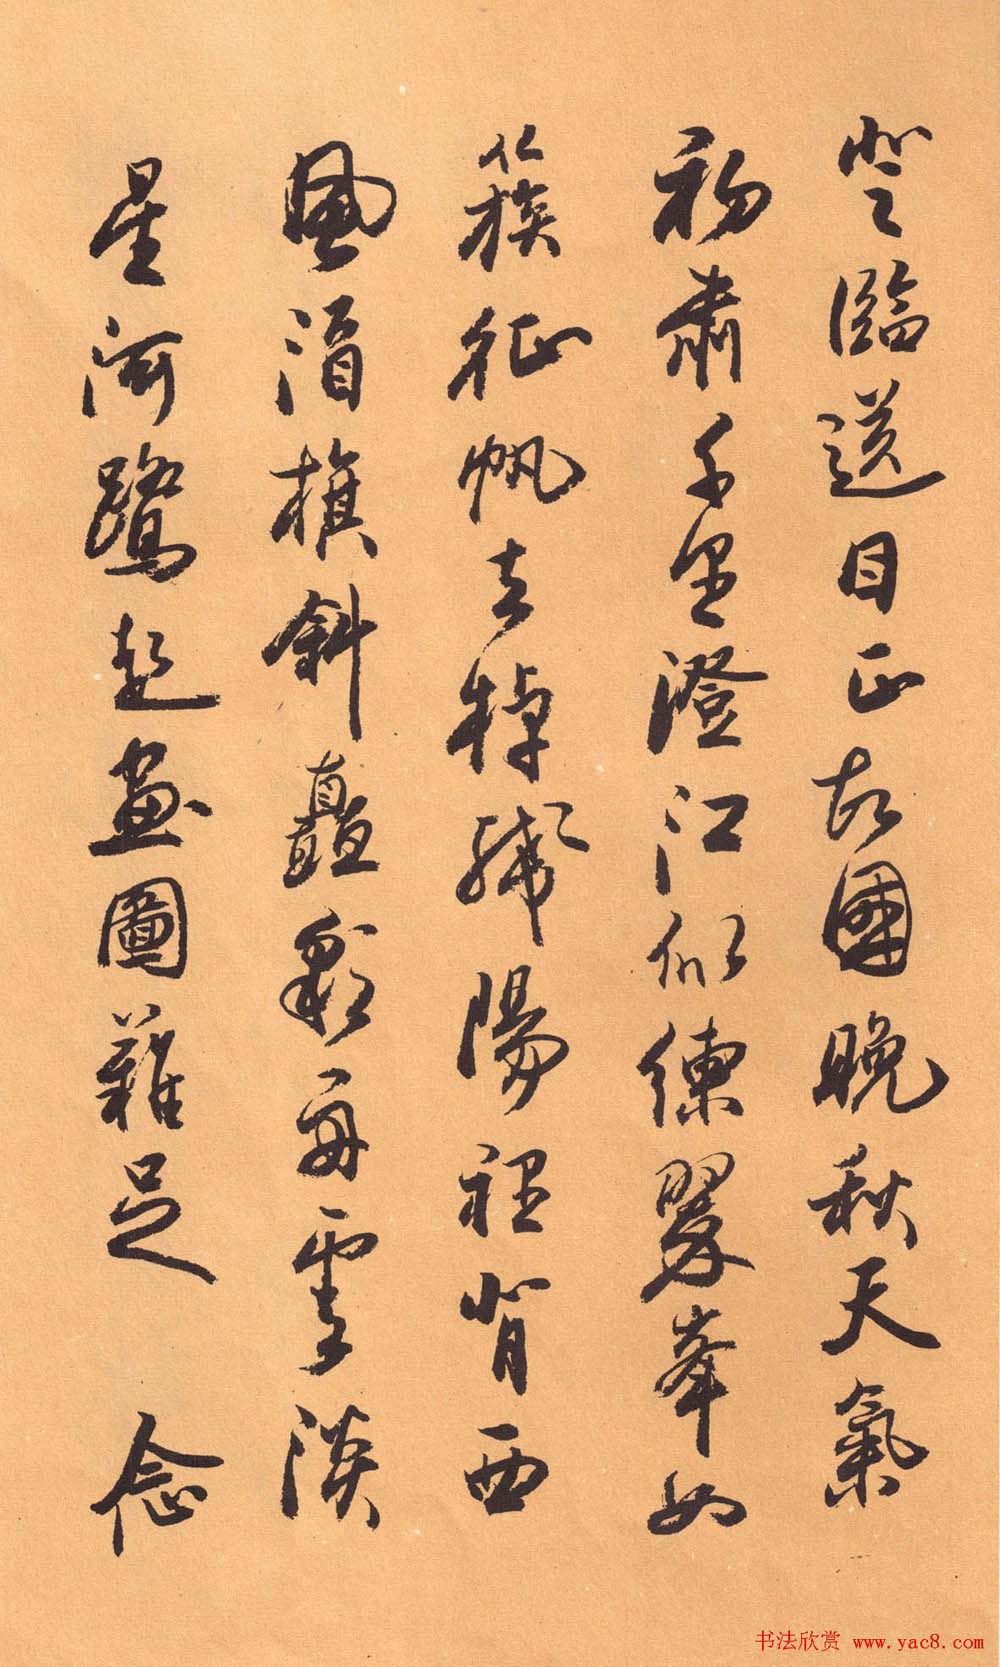 登臨送目正故國晚秋天氣
初肅千里澄江似練翠峯如
簇征帆去棹殘陽裡背西
風酒旗斜矗彩舟雲淡
星河鷺起畫圖難足 念
书法欣赏 www.yac8.com